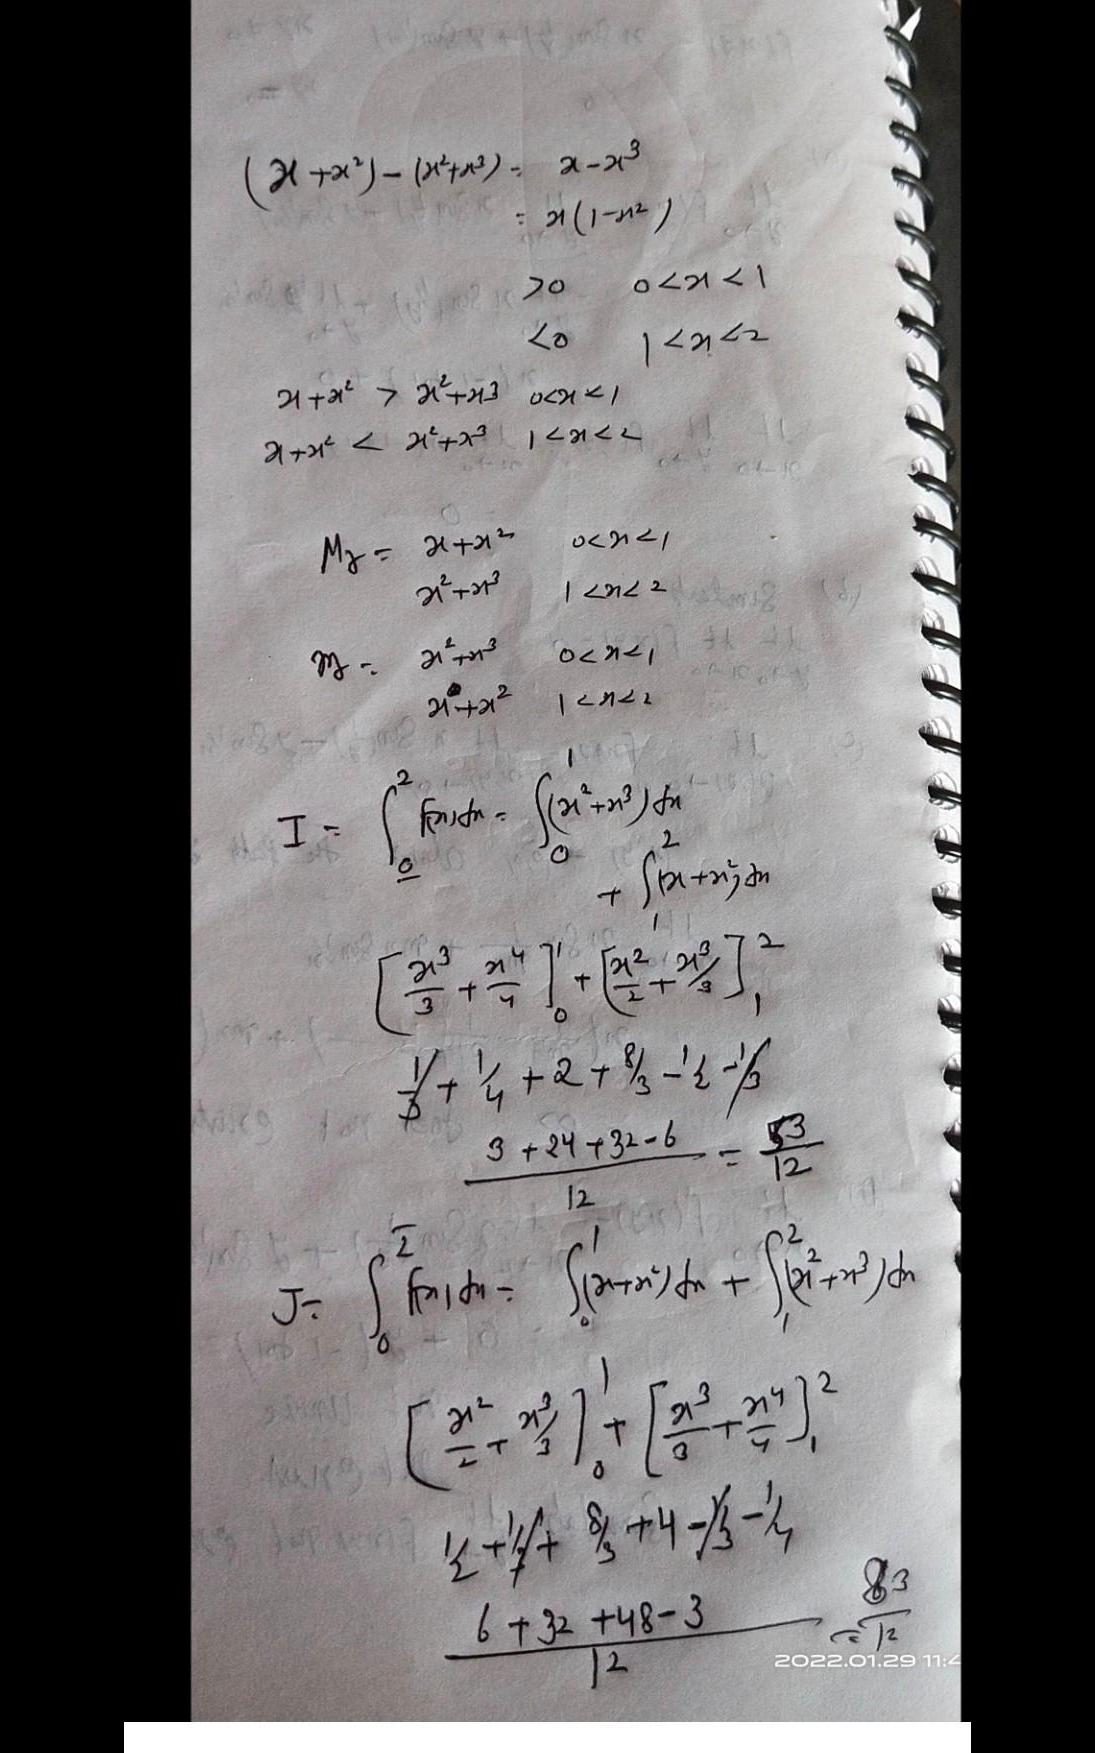 (x + x²) - (x² + x³) = x - x³
= x(1 - x²)
>0 0 < x < 1
<0 1 < x < 2
x + x² > x² + x³ 0 < x < 1
x + x² < x² + x³ 1 < x < 2
Mr = x + x² 0 < x < 1
x² + x³ 1 < x < 2
mr = x² + x³ 0 < x < 1
x + x² 1 < x < 2
I = ∫_0^2 f(x) dx = ∫_0^1 (x² + x³) dx
+ ∫_1^2 (x + x²) dx
[x³/3 + x⁴/4]_0^1 + [x²/2 + x³/3]_1^2
1/3 + 1/4 + 2 + 8/3 - 1/2 - 1/3
(3 + 24 + 32 - 6)/12 = 53/12
J = ∫_0^2 f(x) dx = ∫_0^1 (x + x²) dx + ∫_1^2 (x² + x³) dx
[x²/2 + x³/3]_0^1 + [x³/3 + x⁴/4]_1^2
1/2 + 1/3 + 8/3 + 4 - 1/3 - 1/4
(6 + 32 + 48 - 3)/12 = 83/12
2022.01.29 11:4